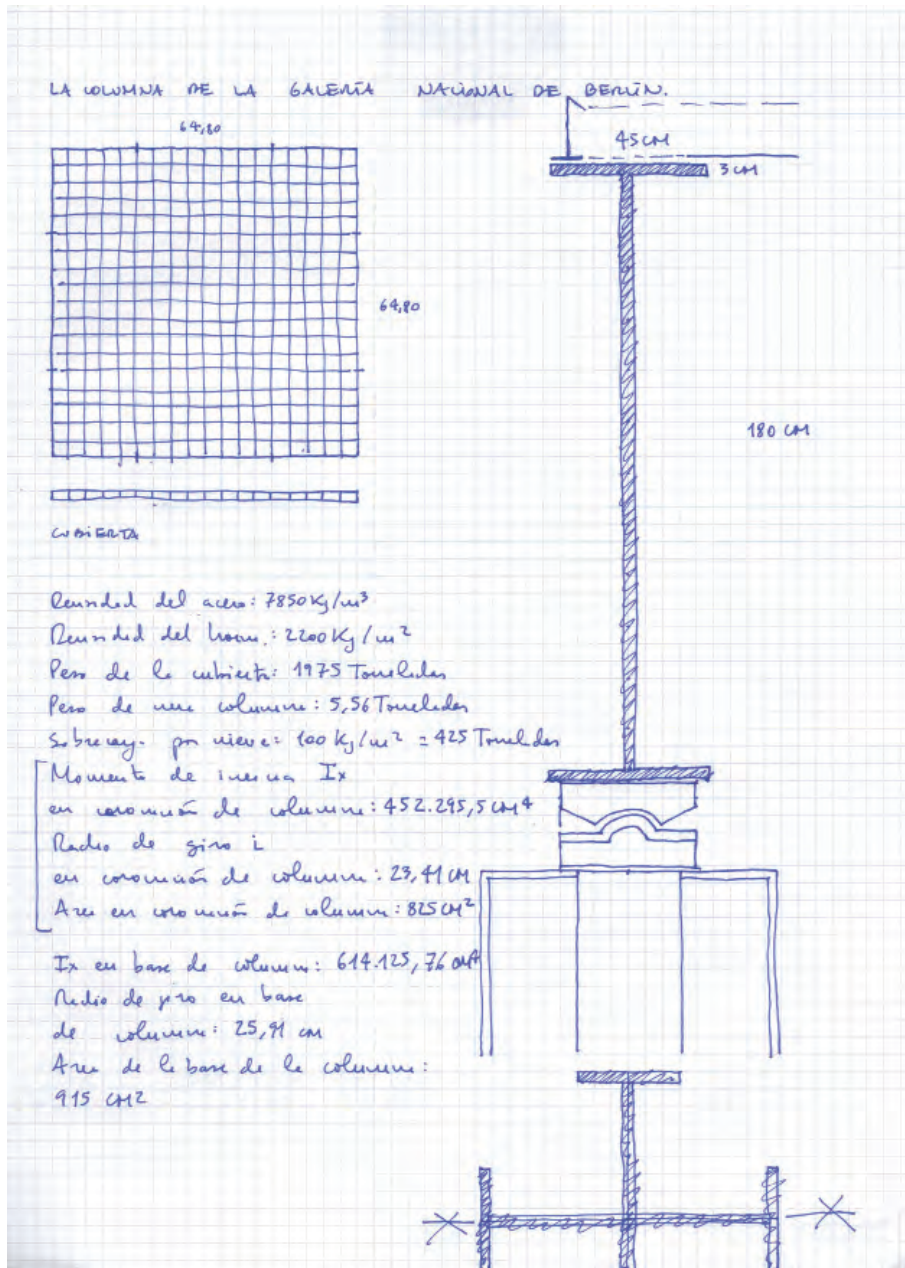 LA COLUMNA DE LA GALERÍA NACIONAL DE BERLÍN.
64,80
45 CM
3 CM
64,80
180 CM
CUBIERTA
Densidad del acero: 7850 Kg/m³
Densidad del horm.: 2200 Kg/m²
Peso de la cubierta: 1975 Toneladas
Peso de una columna: 5,56 Toneladas
Sobrecarg. por nieve: 100 Kg/m² = 425 Toneladas
Momento de inercia Ix
en coronación de columna: 452.295,5 CM⁴
Radio de giro i
en coronación de columna: 23,41 CM
Area en coronación de columna: 825 CM²
Ix en base de columna: 614.125,76 CM⁴
Radio de giro en base
de columna: 25,91 cm
Area de la base de la columna:
915 CM²